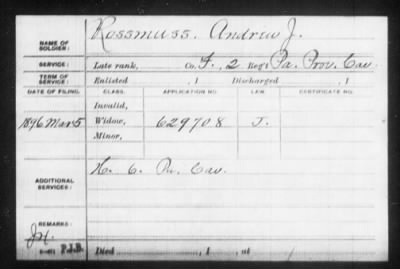 NAME OF SOLDIER: Rossmuss. Andrew J.
SERVICE: Late rank, Co. F, 2 Reg't Pa. Prov. Cav.
TERM OF SERVICE: Enlisted , 1 Discharged , 1
DATE OF FILING. CLASS. APPLICATION NO. LAW. CERTIFICATE NO.
Invalid,
1896 Mar 5 Widow, 629708 J.
Minor,
ADDITIONAL SERVICES: H. 6 Pa. Cav.
REMARKS:
P.I.B. Died , 1 , at